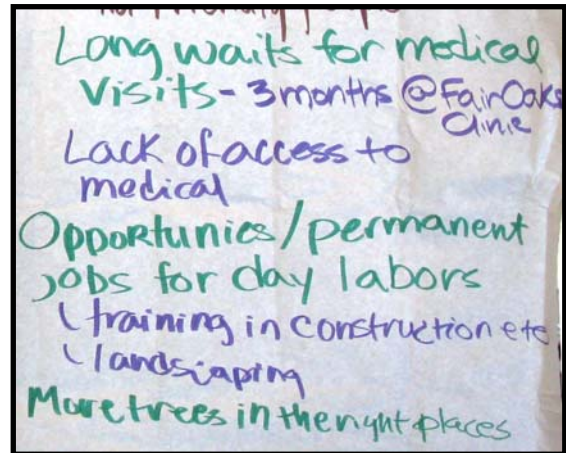 not friendly people
Long waits for medical
Visits - 3 months @ FairOaks
Clinic
Lack of access to
medical
Opportunies/permanent
jobs for day labors
training in construction etc
landscaping
More trees in the right places